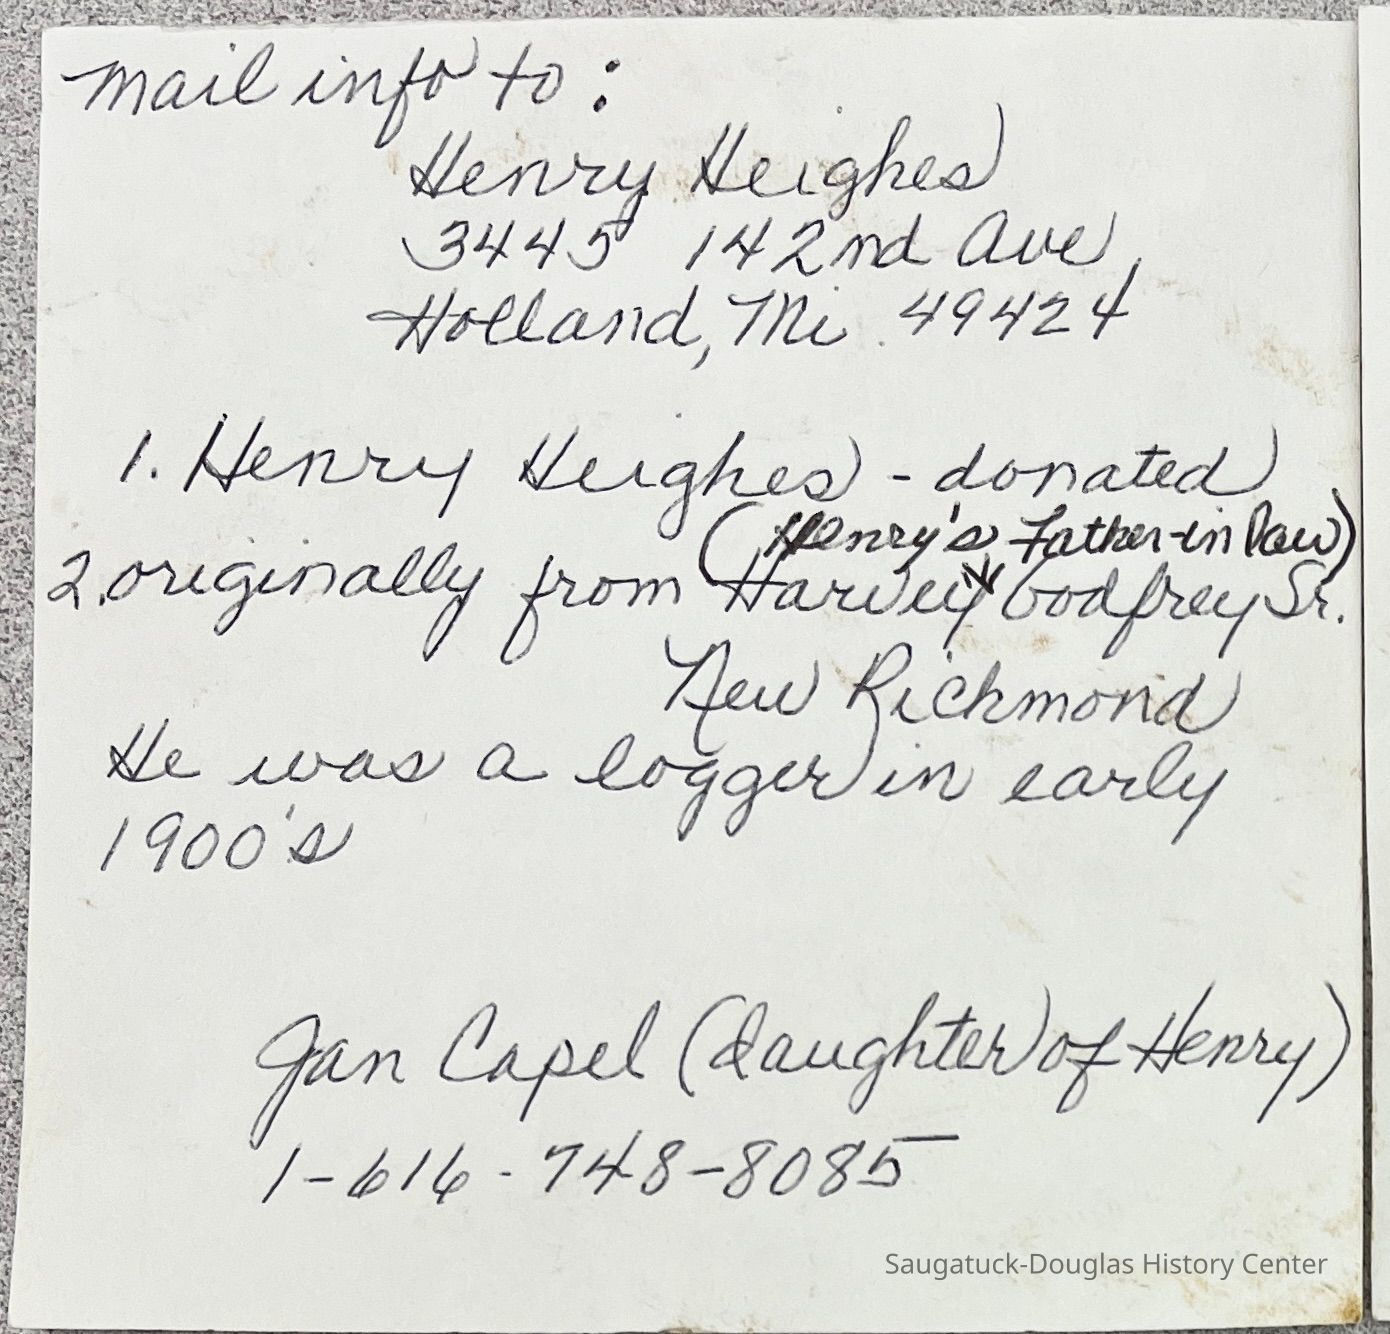 mail info to:
Henry Heighes
3445 142nd Ave,
Holland, Mi 49424
1. Henry Heighes - donated
(Henry's Father-in law)
2. originally from Harvey Godfrey Sr.
New Richmond
He was a logger in early
1900's
Jan Capel (daughter of Henry)
1-616-748-8085
Saugatuck-Douglas History Center